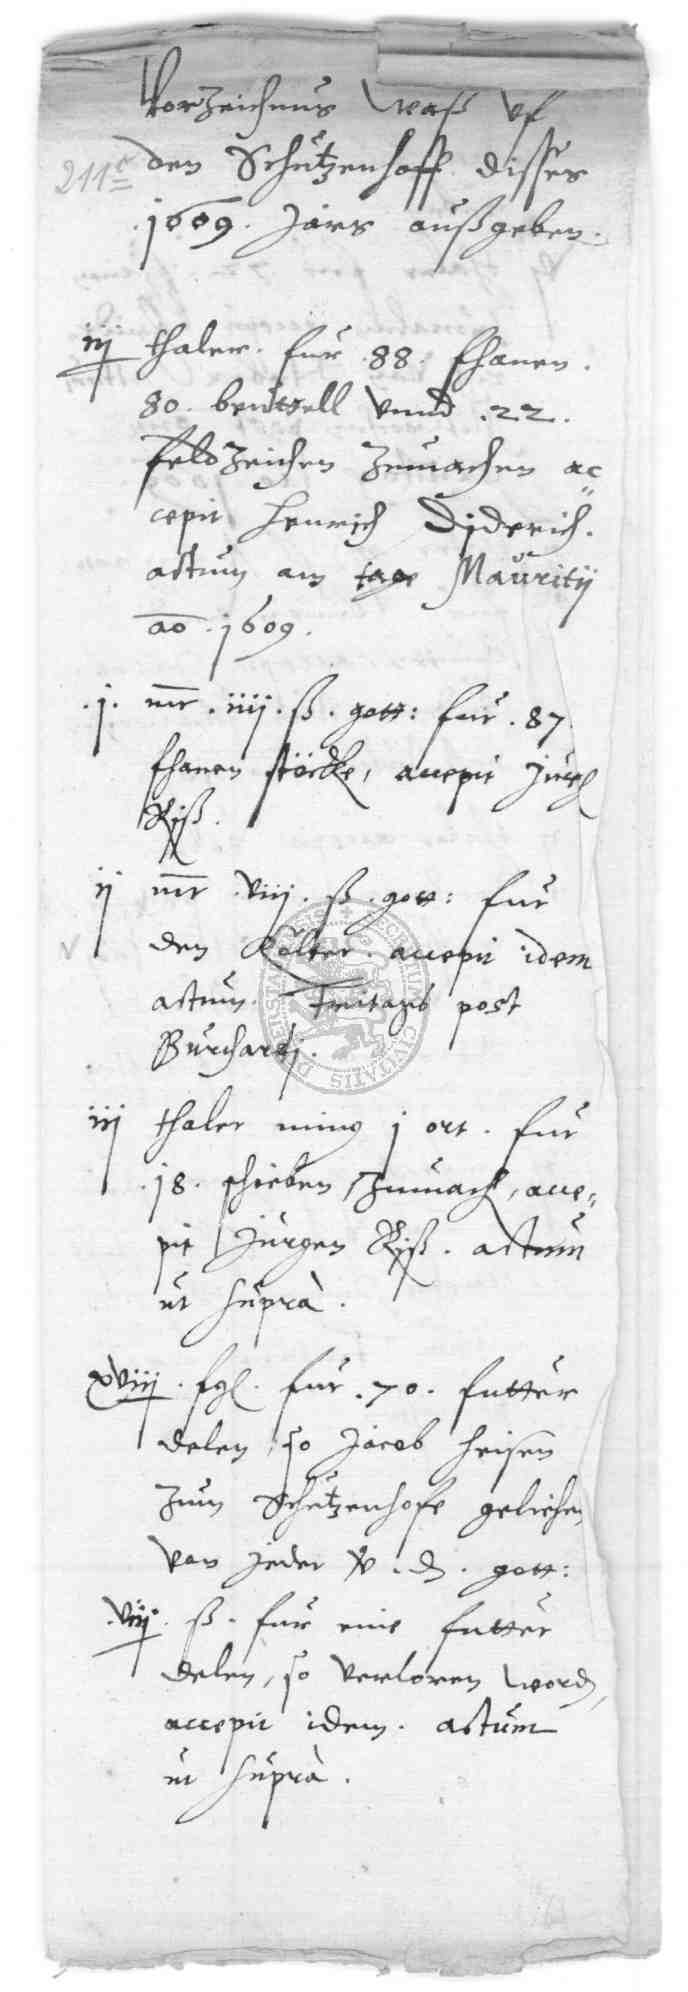 Vorzeichnus Waß Vf
211c den Schützenhoff disses
.1609. Jars außgeben.
iij thaler. fur .88. fhanen.
80. beuttell vnnd .22.
feldzeichen zumachen ac
cepit Henrich Diderich.
actum am tage Mauritij
ao .1609.
.j. mr .iiij. ß. gott: fur .87
fhanen stöcke, accepit Jürg
Riß.
ij mr .viij. ß. gott: fur
den accepit idem
actum. Freitags post
Burchardj.
iij thaler ming j ort. fur
.18. schieben zumach, acce=
pit Jürgen Riß. actum
ut suprà.
xviij. fgl. fur .70. futter
delen, so Jacob Heisen
zum Schützenhofe geliehen
von jeder v. d. gott:
.viij. ß. fur eine futter
delen, so verloren word,
accepit idem. actum
ut suprà.
SIGILLUM CIVITATIS